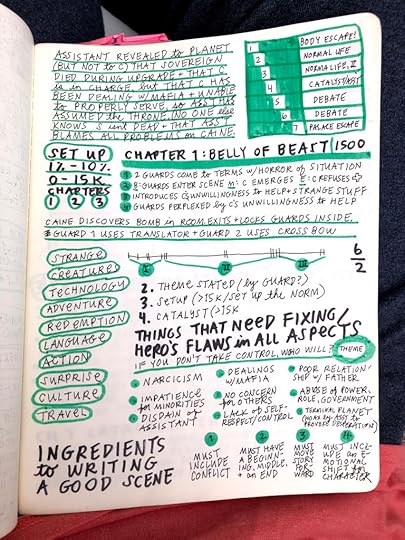 ASSISTANT REVEALED to PLANET
(BUT NOT to C) THAT SOVEREIGN
DIED DURING UPGRADE + THAT C
is in CHARGE, but THAT C HAS
BEEN DEALING w/MAFIA + UNABLE
to PROPERLY SERVE, so ASST HAS
ASSUMED the THRONE. (NO ONE else
KNOWS S isnt DEAD + THAT ASST
BLAMES ALL PROBLEMS on CAINE.
1 BODY ESCAPE!
2 NORMAL LIFE
3 NORMAL LIFE, II
4 CATALYST/ASST
5 DEBATE
6 DEBATE
7 PALACE ESCAPE
SET UP
1% - 10%
0 - 15K
CHAPTERS
1 2 3
CHAPTER 1: BELLY OF BEAST/1500
1 2 GUARDS COME to TERMS w/HORROR of SITUATION
2 B: GUARDS ENTER SCENE M: C EMERGES E: C REFUSES
3 INTRODUCES C'S UNWILLINGNESS to HELP + STRANGE STUFF
4 GUARDS PERPLEXED by C'S UNWILLINGNESS to HELP
CAINE DISCOVERS BOMB in ROOM. EXITS + LOCKS GUARDS INSIDE.
GUARD 1 USES TRANSLATOR + GUARD 2 USES CROSSBOW
STRANGE
CREATURE
TECHNOLOGY
ADVENTURE
REDEMPTION
LANGUAGE
ACTION
SURPRISE
CULTURE
TRAVEL
I II III
6/2
2. THEME STATED (by GUARD?)
3. SETUP (>15K/SET UP the NORM)
4. CATALYST (>15K
THINGS THAT NEED FIXING/
HERO'S FLAWS in ALL ASPECTS
IF YOU DON'T TAKE CONTROL, WHO WILL? THEME
NARCICISM
IMPATIENCE
for MINORITIES
DISDAIN of
ASSISTANT
DEALINGS
w/MAFIA
NO CONCERN
for OTHERS
LACK of SELF-
RESPECT/CONTROL
POOR RELATION-
SHIP w/ FATHER
ABUSES of POWER,
ROLE, GOVERNMENT
TERMINAL PLANET
INGREDIENTS
to WRITING
A GOOD SCENE
1
MUST
INCLUDE
CONFLICT
2
MUST HAVE
A BEGINN-
ING, MIDDLE,
+ an END
3
MUST
MOVE
STORY
FOR-
WARD
4
MUST INCL-
UDE an E-
MOTIONAL
SHIFT for
CHARACTER